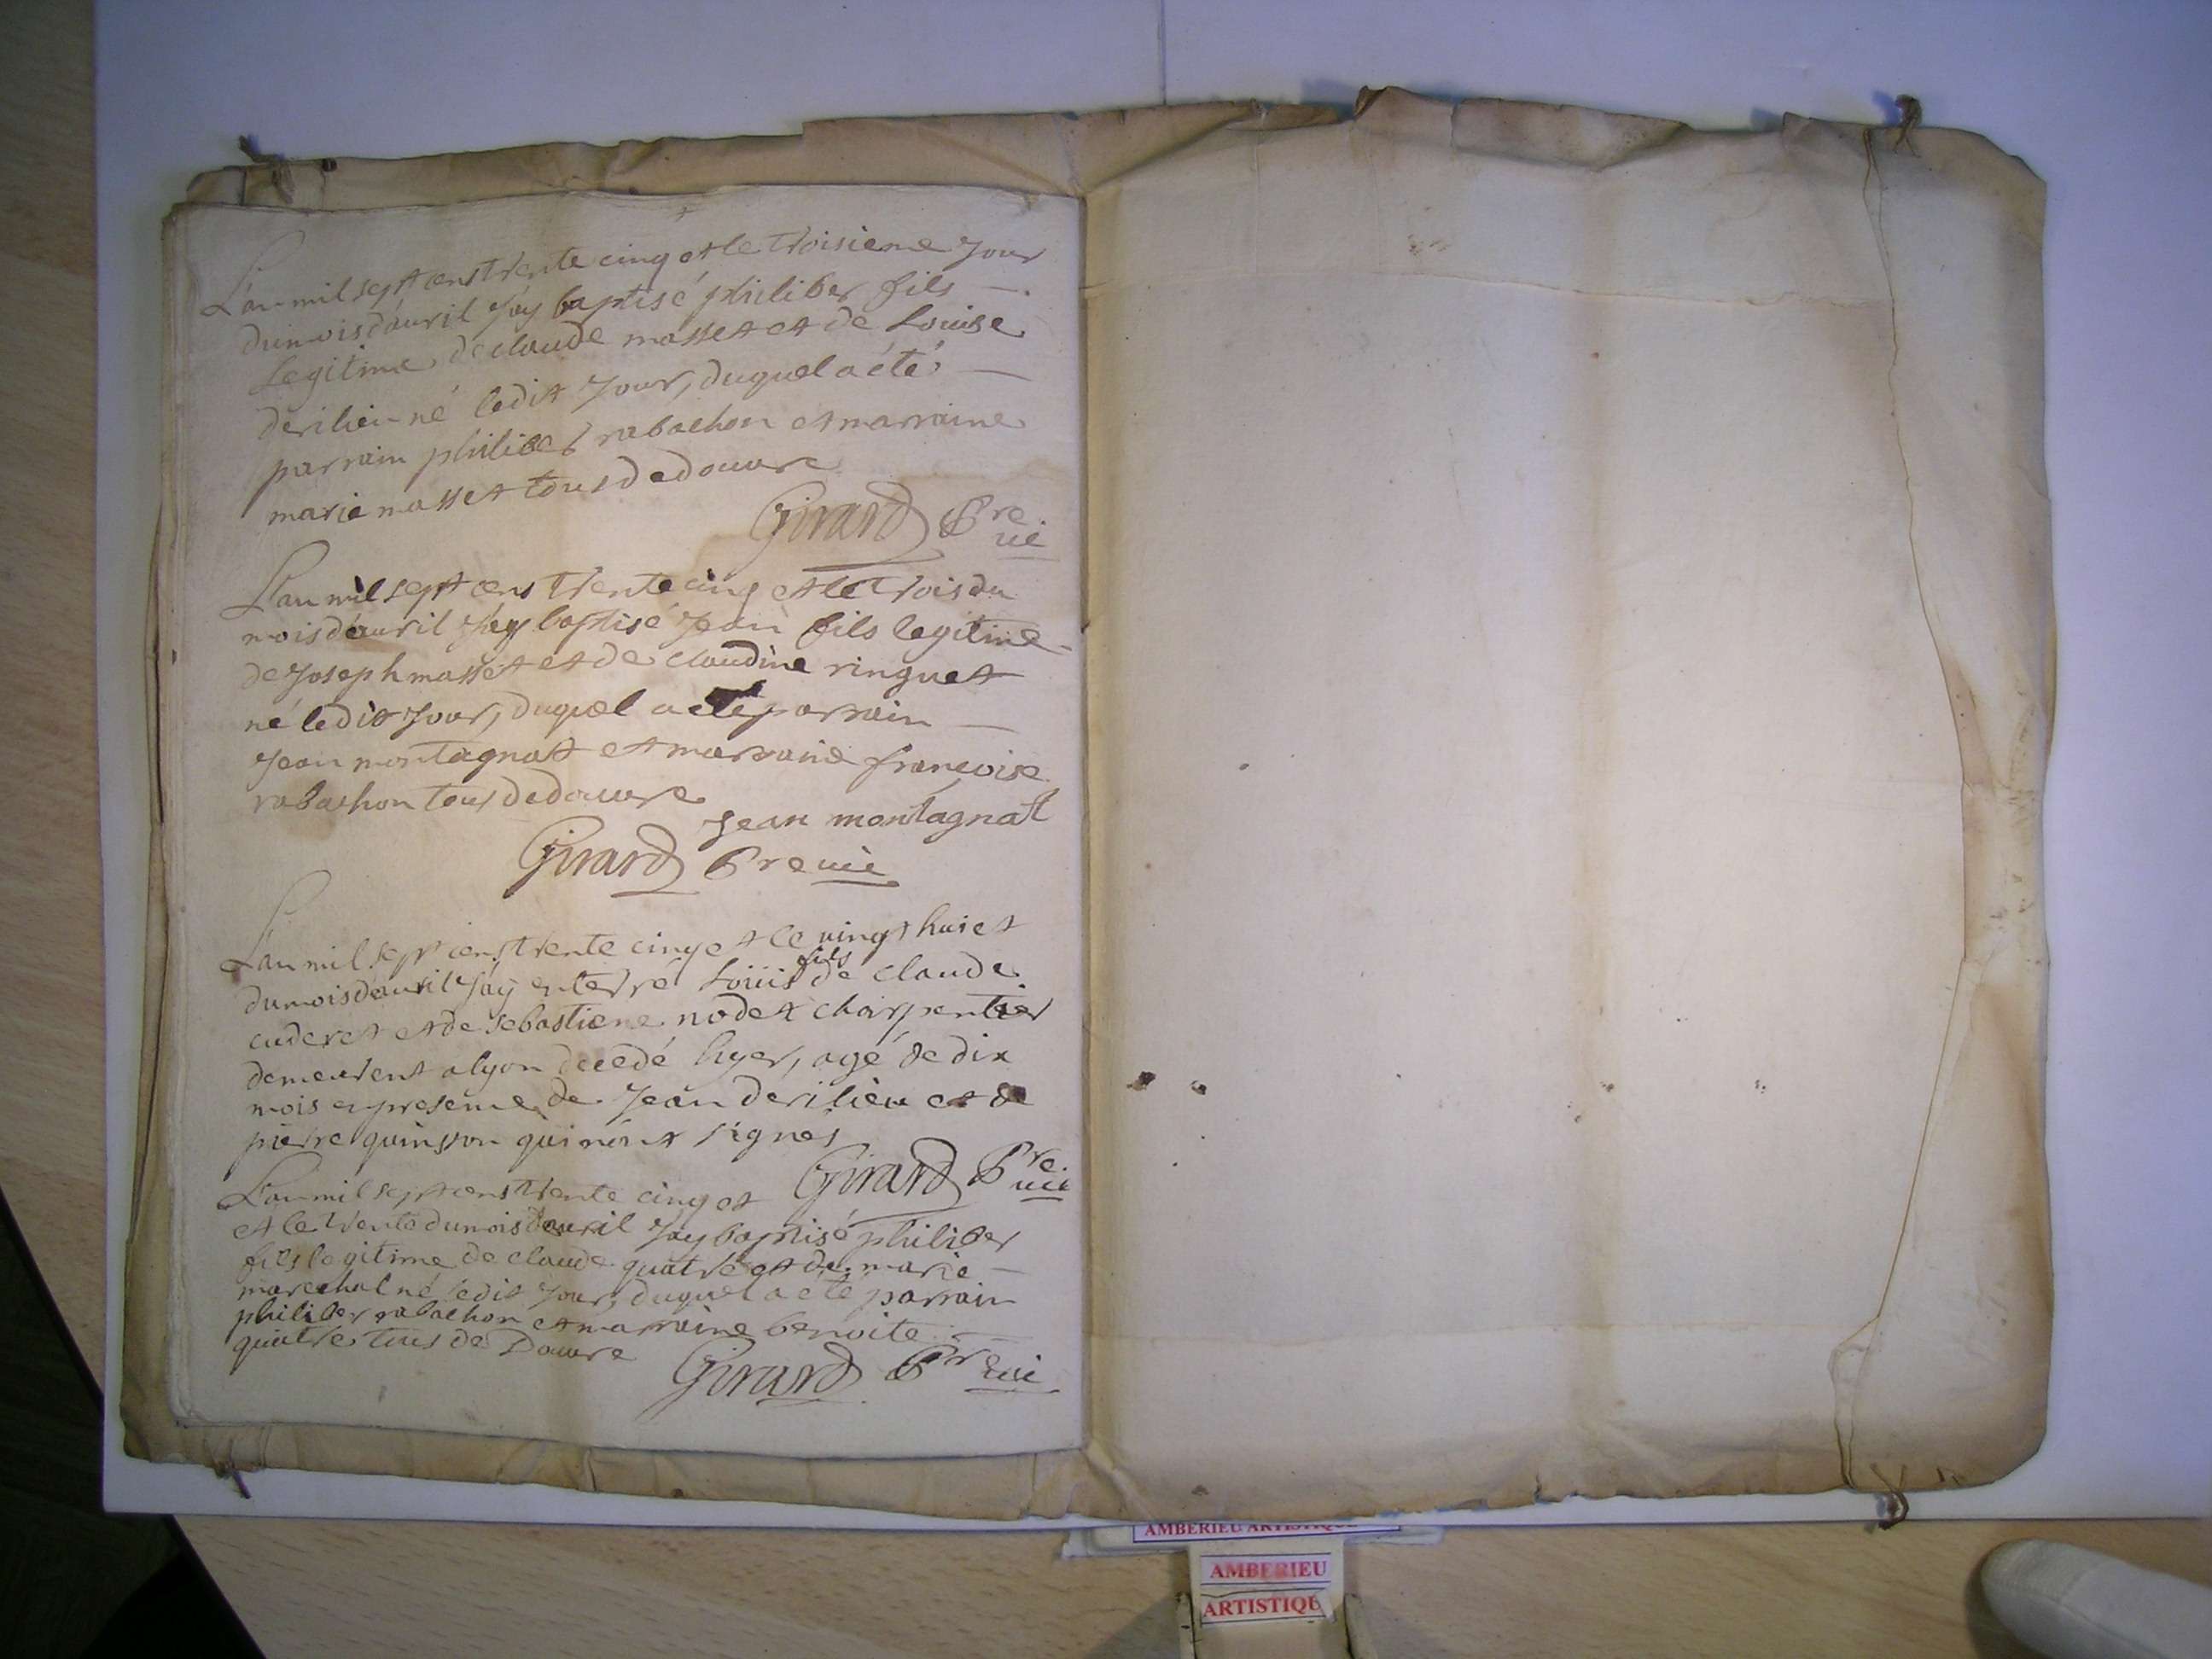 L'an mil sept cens trente cinq et le troisieme Jour
du mois d'auril J'ay baptisé philiber fils
Legitime de claude masset et de Louise
derilieu né ledit Jour, duquel a été
parrain philiber rabachon et marraine
marie masset tous de douure
Girard Pre vic
L'an mil sept cens trente cinq et le trois du
mois d'auril J'ay baptisé Jean fils legitime
de Joseph masset et de claudine ringuet
né ledit Jour, duquel a été parrain
Jean montagnat et marraine francoise
rabachon tous de douure
Jean montagnat
Girard Pre vic
L'an mil sept cens trente cinq et le vingt huict
du mois d'auril J'ay enterré Louis fils de claude
cuderet et de sebastiene nodet charpentier
demeurent a lyon decedé hyer, agé de dix
mois en presence de Jean derilieu et de
pierre quinsson qui n'ont signes
Girard Pre vic
L'an mil sept cens trente cinq et
et le trente du mois d'auril J'ay baptisé philiber
fils legitime de claude quatré et de marie
marechal né ledit Jour, duquel a été parrain
philiber rabachon et marraine benoite
quatre tous de Douure
Girard Pre vic
AMBERIEU ARTISTIQUE
AMBERIEU
ARTISTIQUE